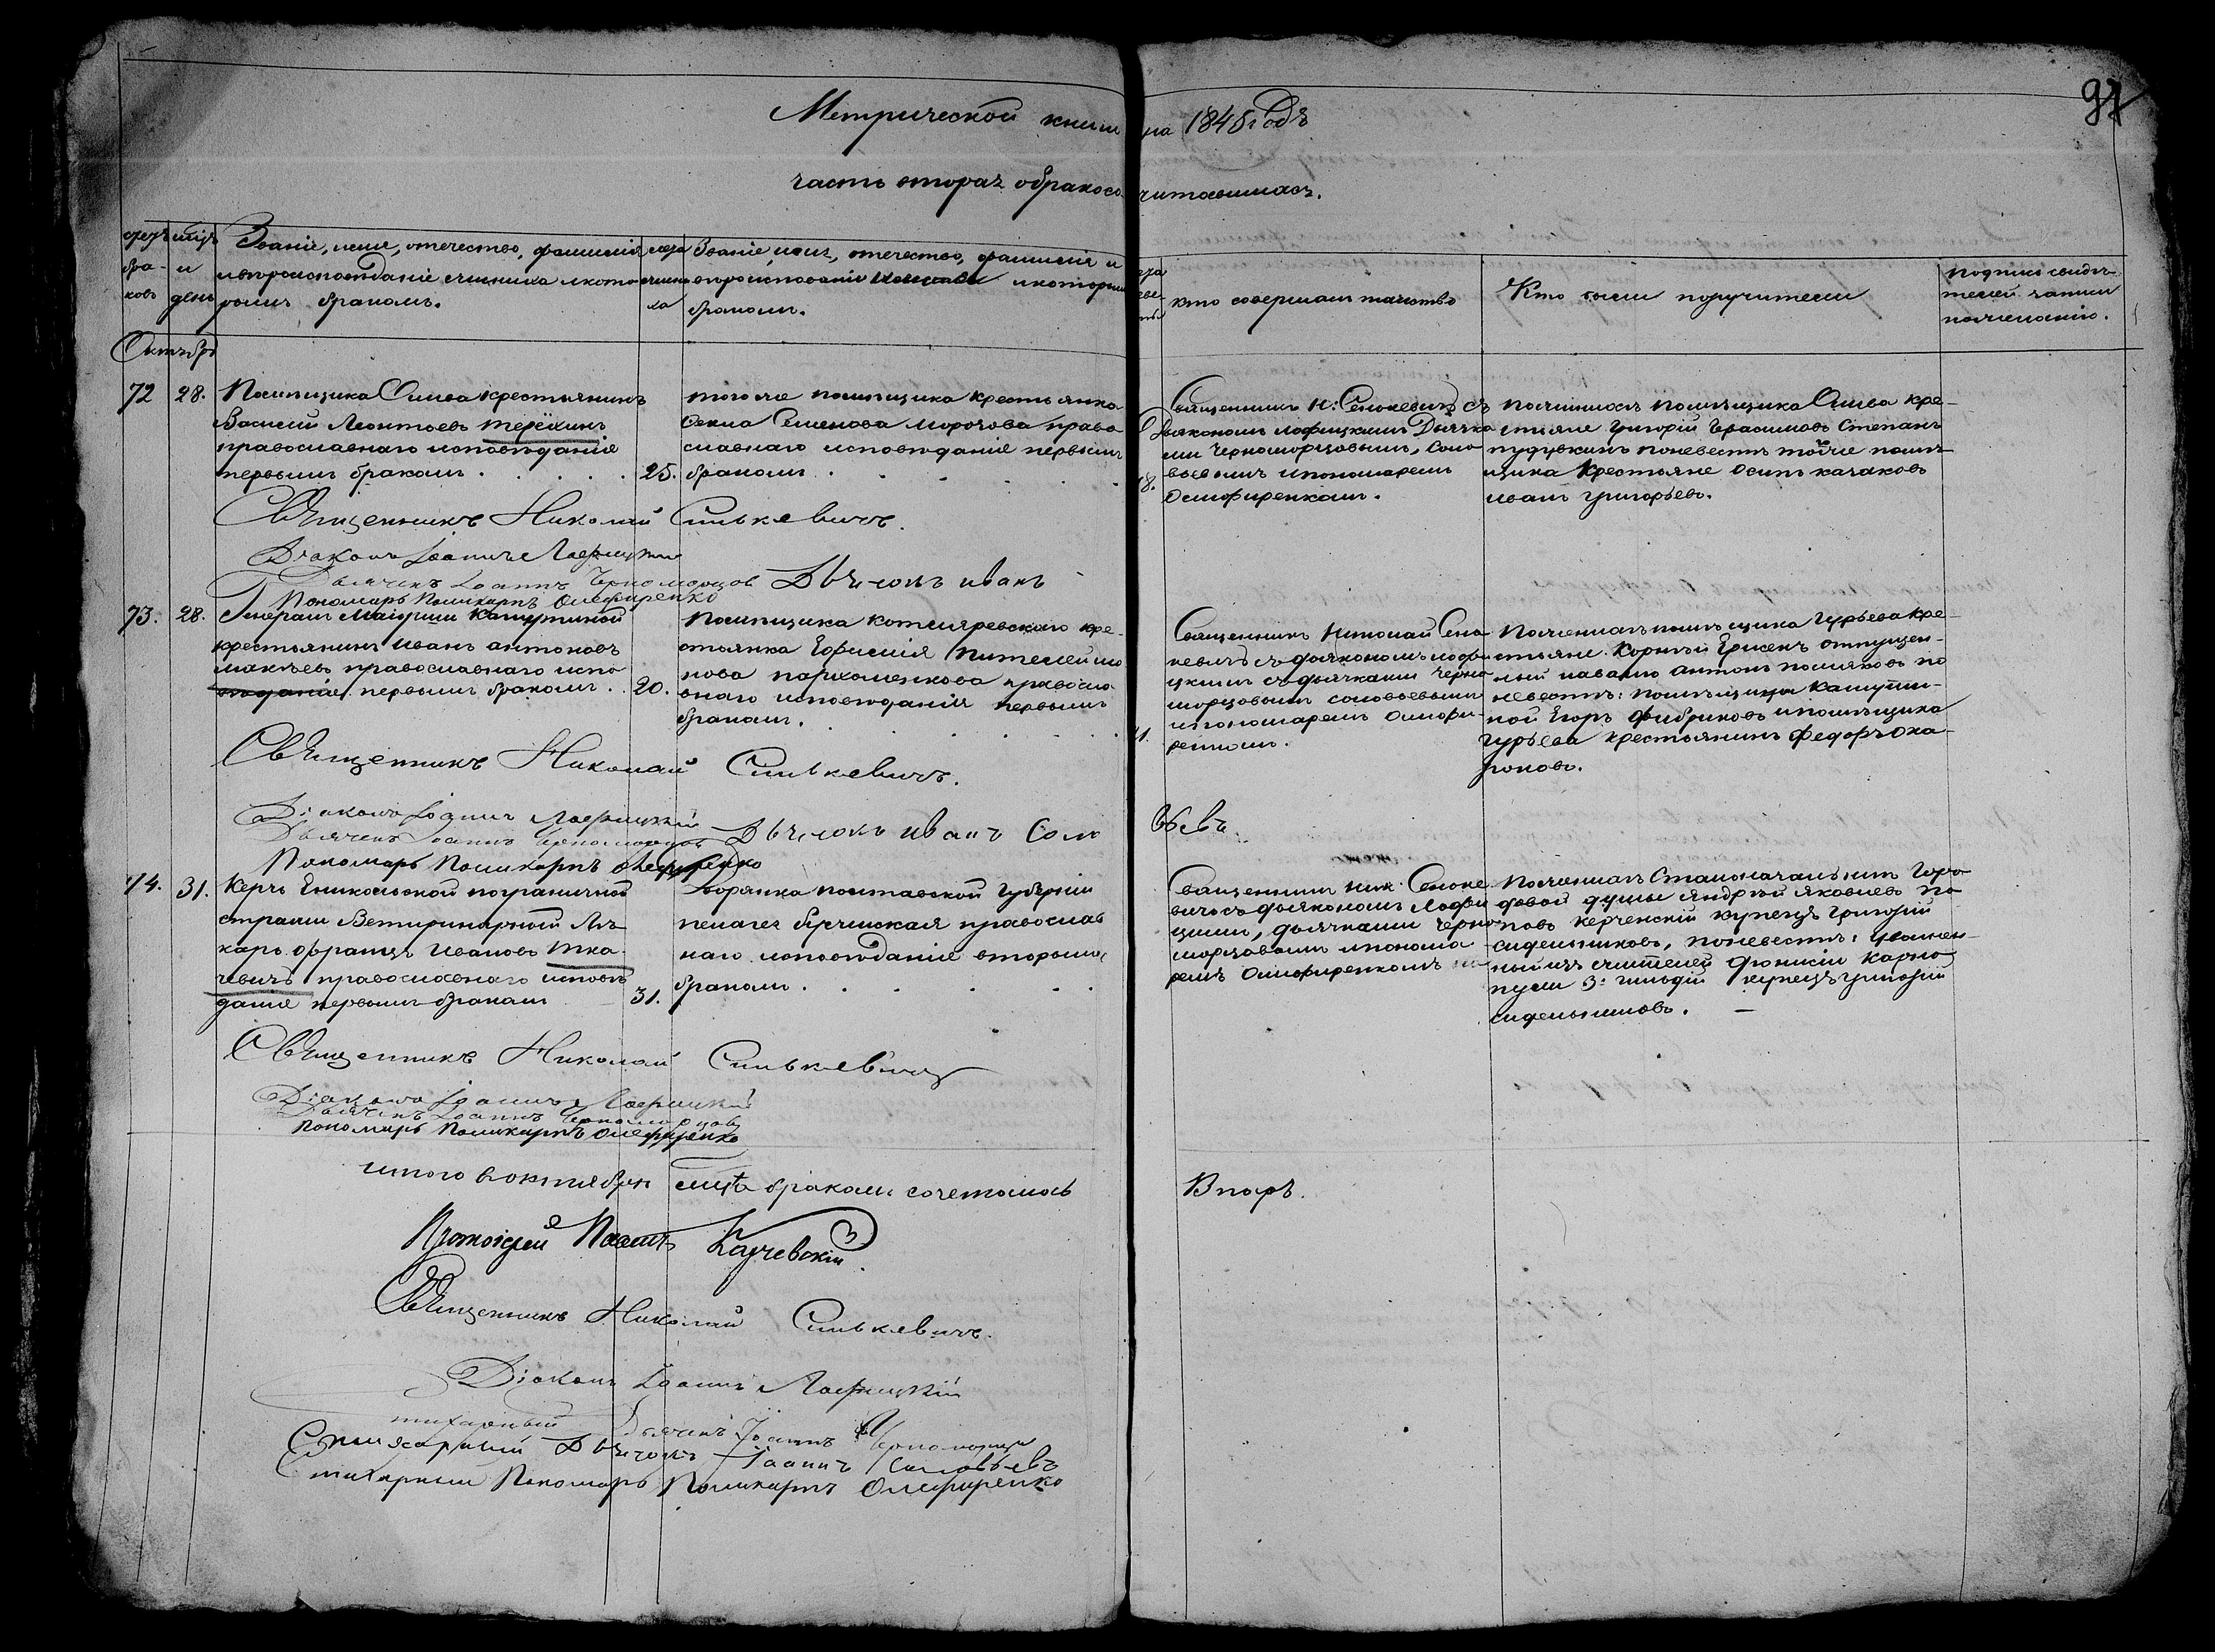 97
Метрической книги на 1845 годъ
часть вторая о бракосочитавшихся.
счетъ браковъ
мѣсяцъ и день
Званіе, имя, отечество, фамилія
и вѣроисповѣданіе жениха и кото-
рымъ бракомъ.
лета жениха
Званіе, имя, отечество, фамилія и
вѣроисповѣданіе невесты и которымъ
бракомъ.
кто совершалъ таинство
Кто были поручители
подпись свидѣ-
телей записи
по желанію.
Октябрь
72
28.
Помѣщика Олива крестьянинъ
Василій Леонтьевъ
православнаго исповѣданія
первымъ бракомъ.
25.
тогоже помѣщика крестьянка
Фекла Семенова Морозова право
славнаго исповѣданія первымъ
бракомъ.
18.
Священникъ Н: Сенкевичъ съ
Дьякономъ Лафицкимъ Дьячка
ми Черноморцовымъ, Соло
вьевымъ и пономаремъ
Олефиренкомъ.
по женихѣ помѣщика Олива кре-
стьяне Григорій Герасимовъ Степанъ
по невестѣ тойже помѣ-
щика Крестьяне Осипъ Казаковъ
Иванъ Григорьевъ.
Священникъ Николай Синькевичъ.
Діаконъ Іоаннъ Лафицкій
Дьячекъ Іоаннъ Черноморцов Дьячокъ Иванъ
Пономарь Поликарпъ Олефиренко
73.
28.
Генералъ Маіорши Кашутиной
крестьянинъ Иванъ Антоновъ
православнаго испо
вѣданія первымъ бракомъ.
20.
Помѣщика Котляревскаго кре-
стьянка
Пархоменкова правосла
внаго исповѣданія первымъ
бракомъ.
Священникъ Николай Сен
кевичъ съ дьякономъ Лафи
цкимъ съ дьячками Черно
морцовымъ Соловьевымъ
и пономаремъ Олефи-
ренкомъ.
По женихѣ помѣщика Гурьева кре-
стьяне: Корнѣй отпущен-
ный на волю Антонъ Поляковъ по
невестѣ: помѣщицы Кашути-
ной Егоръ Фибриковъ и помѣщика
Гурьева крестьянинъ Федоръ
Священникъ Николай Синькевичъ.
Діаконъ Іоаннъ Лафицкій
Дьячекъ Іоаннъ Черноморцов Дьячокъ Иванъ Соловьевъ.
Пономарь Поликарпъ Олефиренко
74.
31.
Керчь Еникольской пограничной
стражи Ветиринарный Лѣ
карь Францъ Ивановъ Тка-
чевичъ православнаго исповѣ
данія первымъ бракомъ
31.
Дворянка Полтавской Губерніи
Пелагея православ
наго исповѣданія вторымъ
бракомъ.
Священникъ Ник. Сенке
вичъ съ дьякономъ Лафи
цкимъ, дьячками Черно
морцовымъ и понома
ремъ Олефиренкомъ
По женихѣ
Андрѣй Яковлевъ По
повъ Керченскій купецъ Григорій
Сидельниковъ, по невестѣ:
3й гильдіи купецъ Григорій
Сидельниковъ.
Священникъ Николай Синькевичъ
Діаконъ Іоаннъ Лафицкій
Дьячекъ Іоаннъ Черноморцовъ
Пономарь Поликарпъ Олефиренко
итого в октябрѣ мцѣ бракомъ сочеталось 8 паръ.
Протоіерей
Священникъ Николай Синькевичъ.
Діаконъ Іоаннъ Лафицкій
стихарный Дьячекъ Іоаннъ Черноморцъ
Стихарный Дьячокъ Іоаннъ Соловьевъ
Стихарный Пономарь Поликарпъ Олефиренко